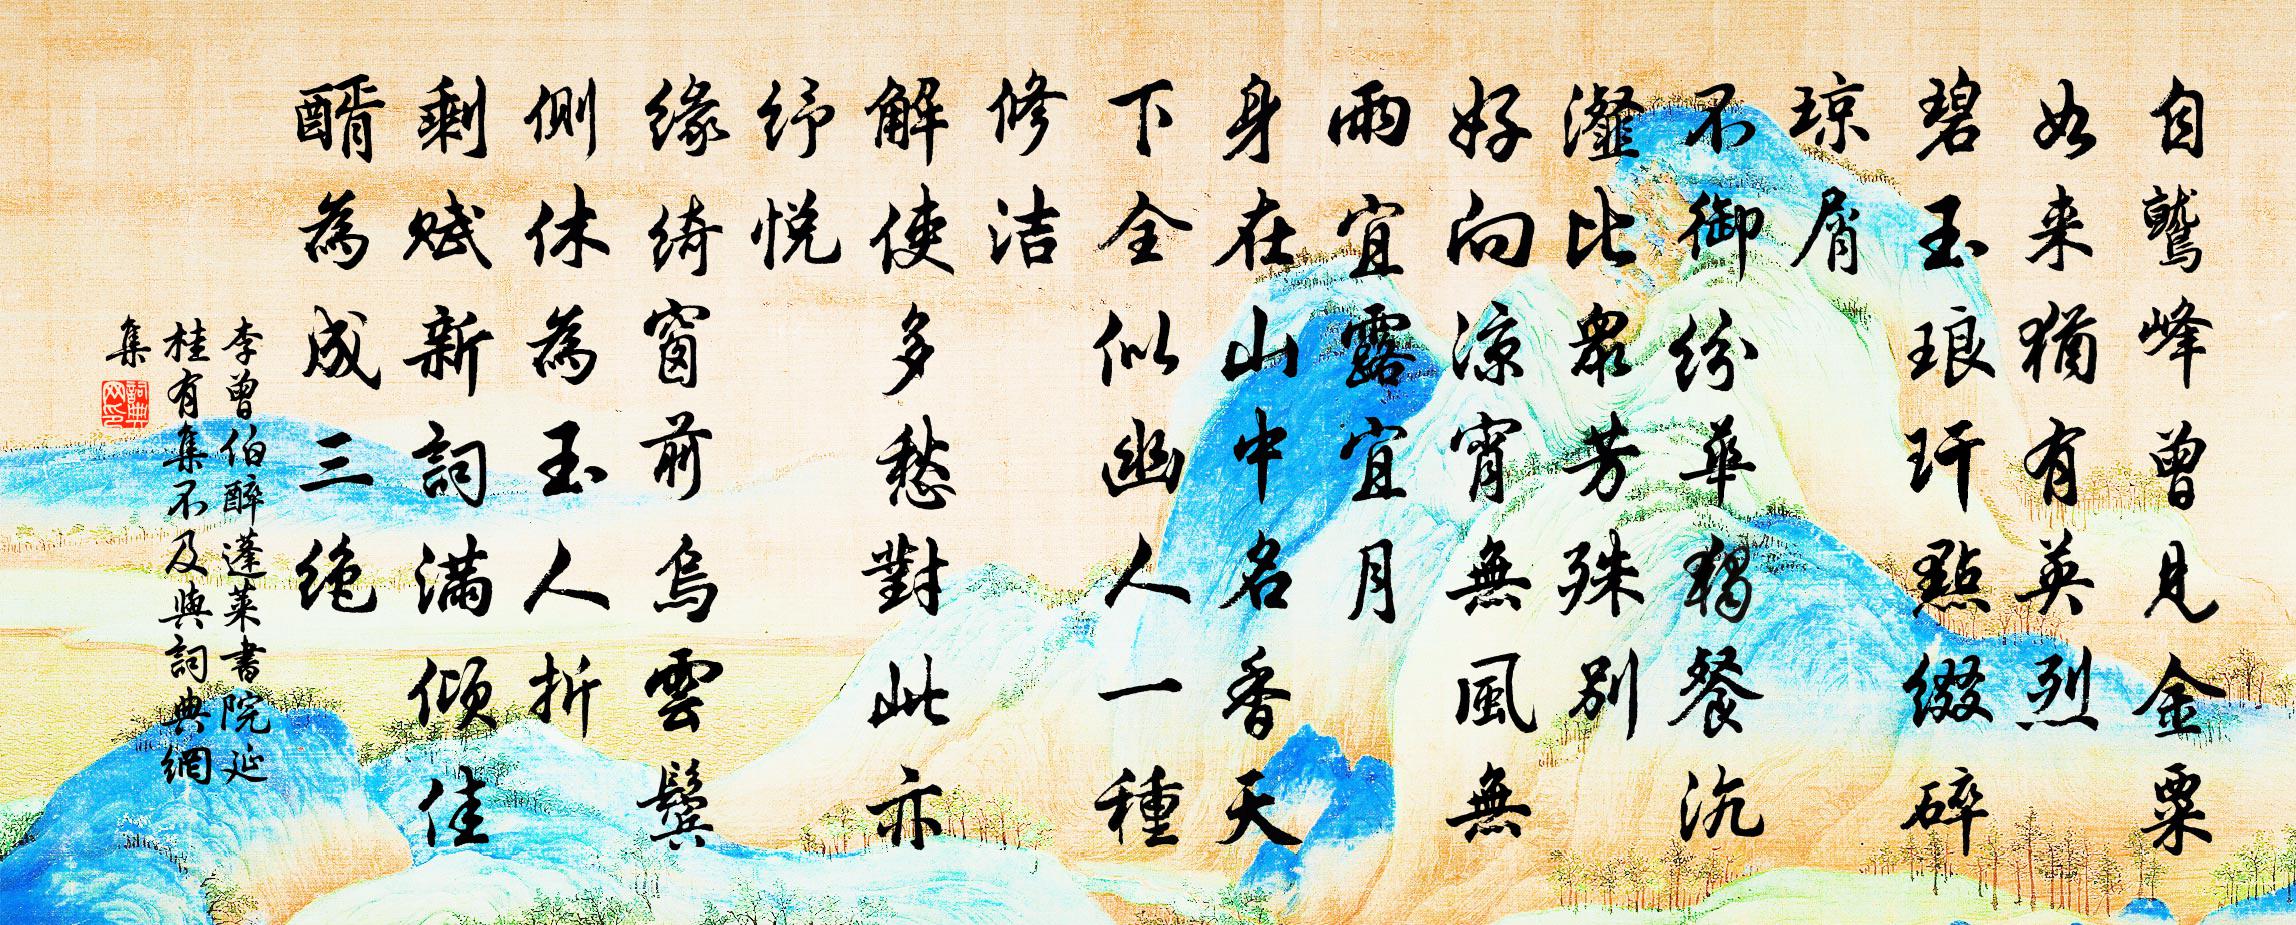 自鷲峰曾見金粟
如来猶有英烈
碧玉琅玕點綴碎
瓊屑
不御紛華獨餐沆
瀣比衆芳殊別
好向凉宵無風無
雨宜露宜月
身在山中名香天
下全似幽人一種
修洁
解使多愁對此亦
紓悦
緣綺窗前烏雲鬓
側休為玉人折
剩賦新詞滿傾佳
醑為成三绝
李曾伯醉蓬莱書院延
桂有集不及與詞典網
集
詞典網印